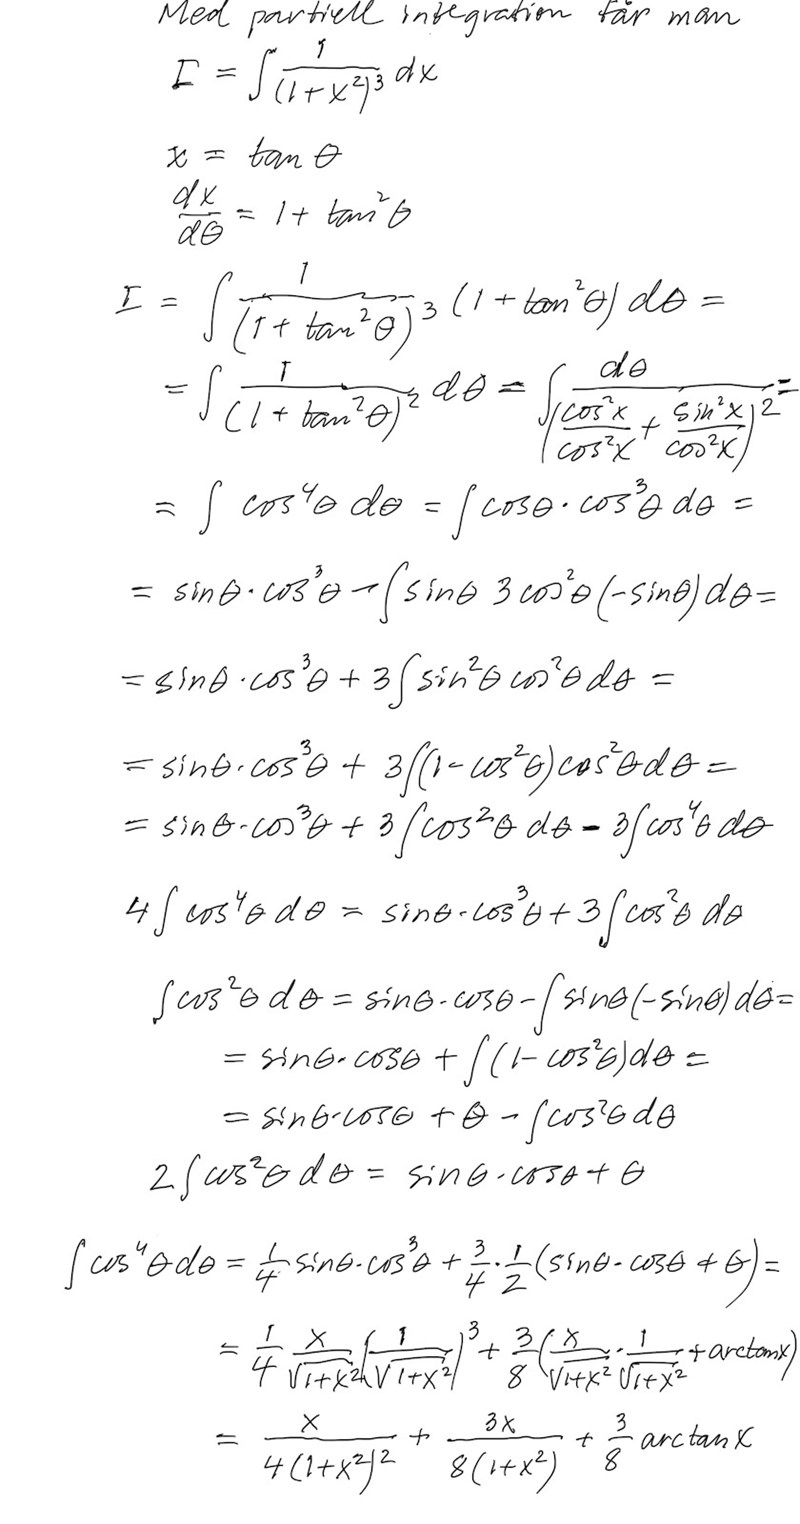 Med partiell integration får man
I = ∫ 1/(1+x²)³ dx
x = tan θ
dx/dθ = 1 + tan²θ
I = ∫ 1/(1 + tan²θ)³ (1 + tan²θ) dθ =
= ∫ 1/(1 + tan²θ)² dθ = ∫ dθ/(cos²x/cos²x + sin²x/cos²x)² =
= ∫ cos⁴θ dθ = ∫ cosθ · cos³θ dθ =
= sinθ · cos³θ - ∫ sinθ 3cos²θ (-sinθ) dθ =
= sinθ · cos³θ + 3∫ sin²θ cos²θ dθ =
= sinθ · cos³θ + 3∫(1 - cos²θ) cos²θ dθ =
= sinθ · cos³θ + 3∫cos²θ dθ - 3∫cos⁴θ dθ
4∫ cos⁴θ dθ = sinθ · cos³θ + 3∫ cos²θ dθ
∫ cos²θ dθ = sinθ · cosθ - ∫ sinθ (-sinθ) dθ =
= sinθ · cosθ + ∫ (1 - cos²θ) dθ =
= sinθ · cosθ + θ - ∫ cos²θ dθ
2∫ cos²θ dθ = sinθ · cosθ + θ
∫ cos⁴θ dθ = 1/4 sinθ · cos³θ + 3/4 · 1/2 (sinθ · cosθ + θ) =
= 1/4 x/√(1+x²) (1/√(1+x²))³ + 3/8 (x/√(1+x²) · 1/√(1+x²) + arctanx)
= x/4(1+x²)² + 3x/8(1+x²) + 3/8 arctan x